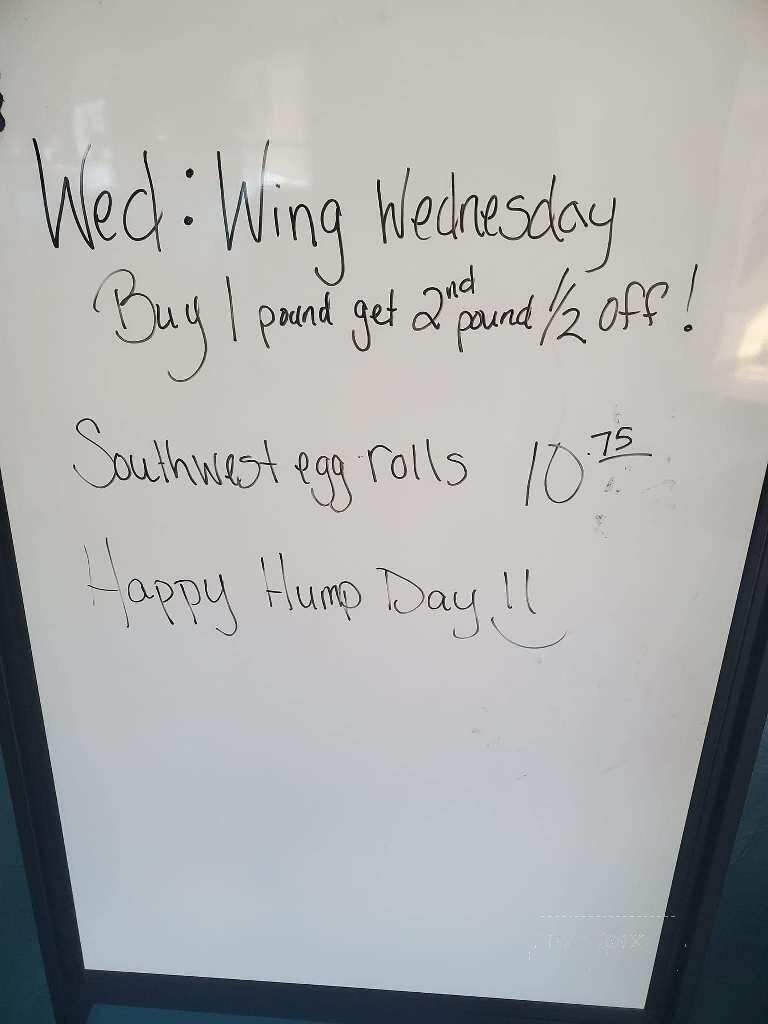 Wed: Wing Wednesday
Buy 1 pound get 2nd pound 1/2 off!
Southwest egg rolls 10.75
Happy Hump Day!!